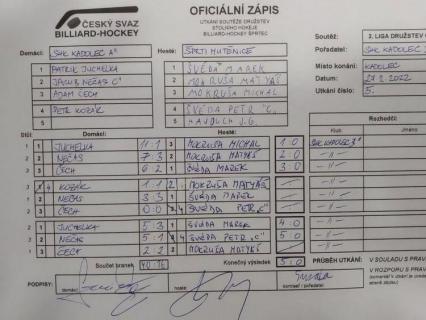 ČESKÝ SVAZ
BILLIARD-HOCKEY
OFICIÁLNÍ ZÁPIS
UTKÁNÍ SOUTĚŽE DRUŽSTEV
STOLNÍHO HOKEJE
BILLIARD-HOCKEY ŠPRTEC
Soutěž: 2. LIGA DRUŽSTEV
Domácí: SHK KADOLEC A" Hosté: ŠPRTI MUTĚNICE Pořadatel: SHK KADOLEC
1 PATRIK JUCHELKA 1 ŠVÉDA MAREK Místo konání: KADOLEC
2 JAKUB NEČAS C" 2 MOKRUŠA MATYÁŠ Datum: 2022
3 ADAM ČECH 3 MOKRUŠA MICHAL Utkání číslo: 5.
4 PETR KOZÁK 4 ŠVÉDA PETR "C"
5 5
Rozhodčí:
Stůl: Domácí: Hosté: Klub Jméno
1 1 JUCHELKA 11:1 3 MOKRUŠA MICHAL 1:0 SHK KADOLEC
2 2 NEČAS 7:3 2 MOKRUŠA MATYÁŠ 2:0 -//-
3 3 ČECH 6:2 1 ŠVÉDA MAREK 3:0 -//-
4 KOZÁK 1:1 2 MOKRUŠA MATYÁŠ -//-
2 NEČAS 3:3 1 ŠVÉDA MAREK -//-
3 ČECH 0:0 4 ŠVÉDA PETR "C" -//-
1 JUCHELKA 5:3 1 ŠVÉDA MAREK 4:0 -//-
2 NEČAS 5:1 4 ŠVÉDA PETR "C" 5:0 -//-
3 ČECH 2:2 2 MOKRUŠA MATYÁŠ -//-
Součet branek 40:16 Konečný výsledek 5:0 PRŮBĚH UTKÁNÍ: V SOULADU S PRAV
PODPISY: domácí: hosté: komisař / pořadatel: V ROZPORU S PRAV